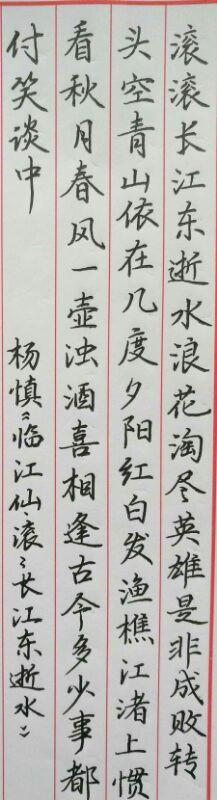 滚滚长江东逝水浪花淘尽英雄是非成败转
头空青山依在几度夕阳红白发渔樵江渚上惯
看秋月春风一壶浊酒喜相逢古今多少事都
付笑谈中
杨慎《临江仙滚々长江东逝水》